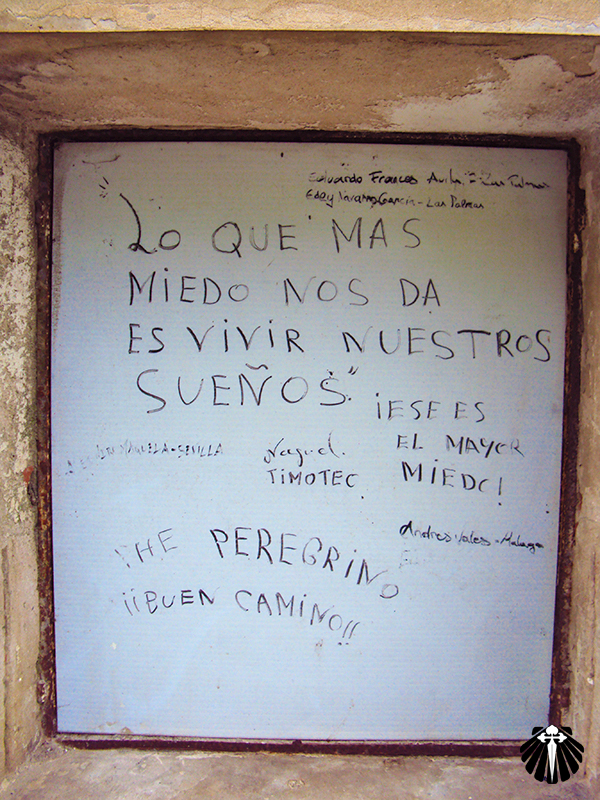 Eduardo Frances Avila - Las Palmas
Eday Navarro García - Las Palmas
"Lo QUE MAS
MIEDO NOS DA
ES VIVIR NUESTROS
SUEÑOS"
¡ESE ES
EL MAYOR
MIEDO!
MANUELA - SEVILLA
TIMOTEC
Andres Vales - Malaga
THE PEREGRINO
¡¡BUEN CAMINO!!